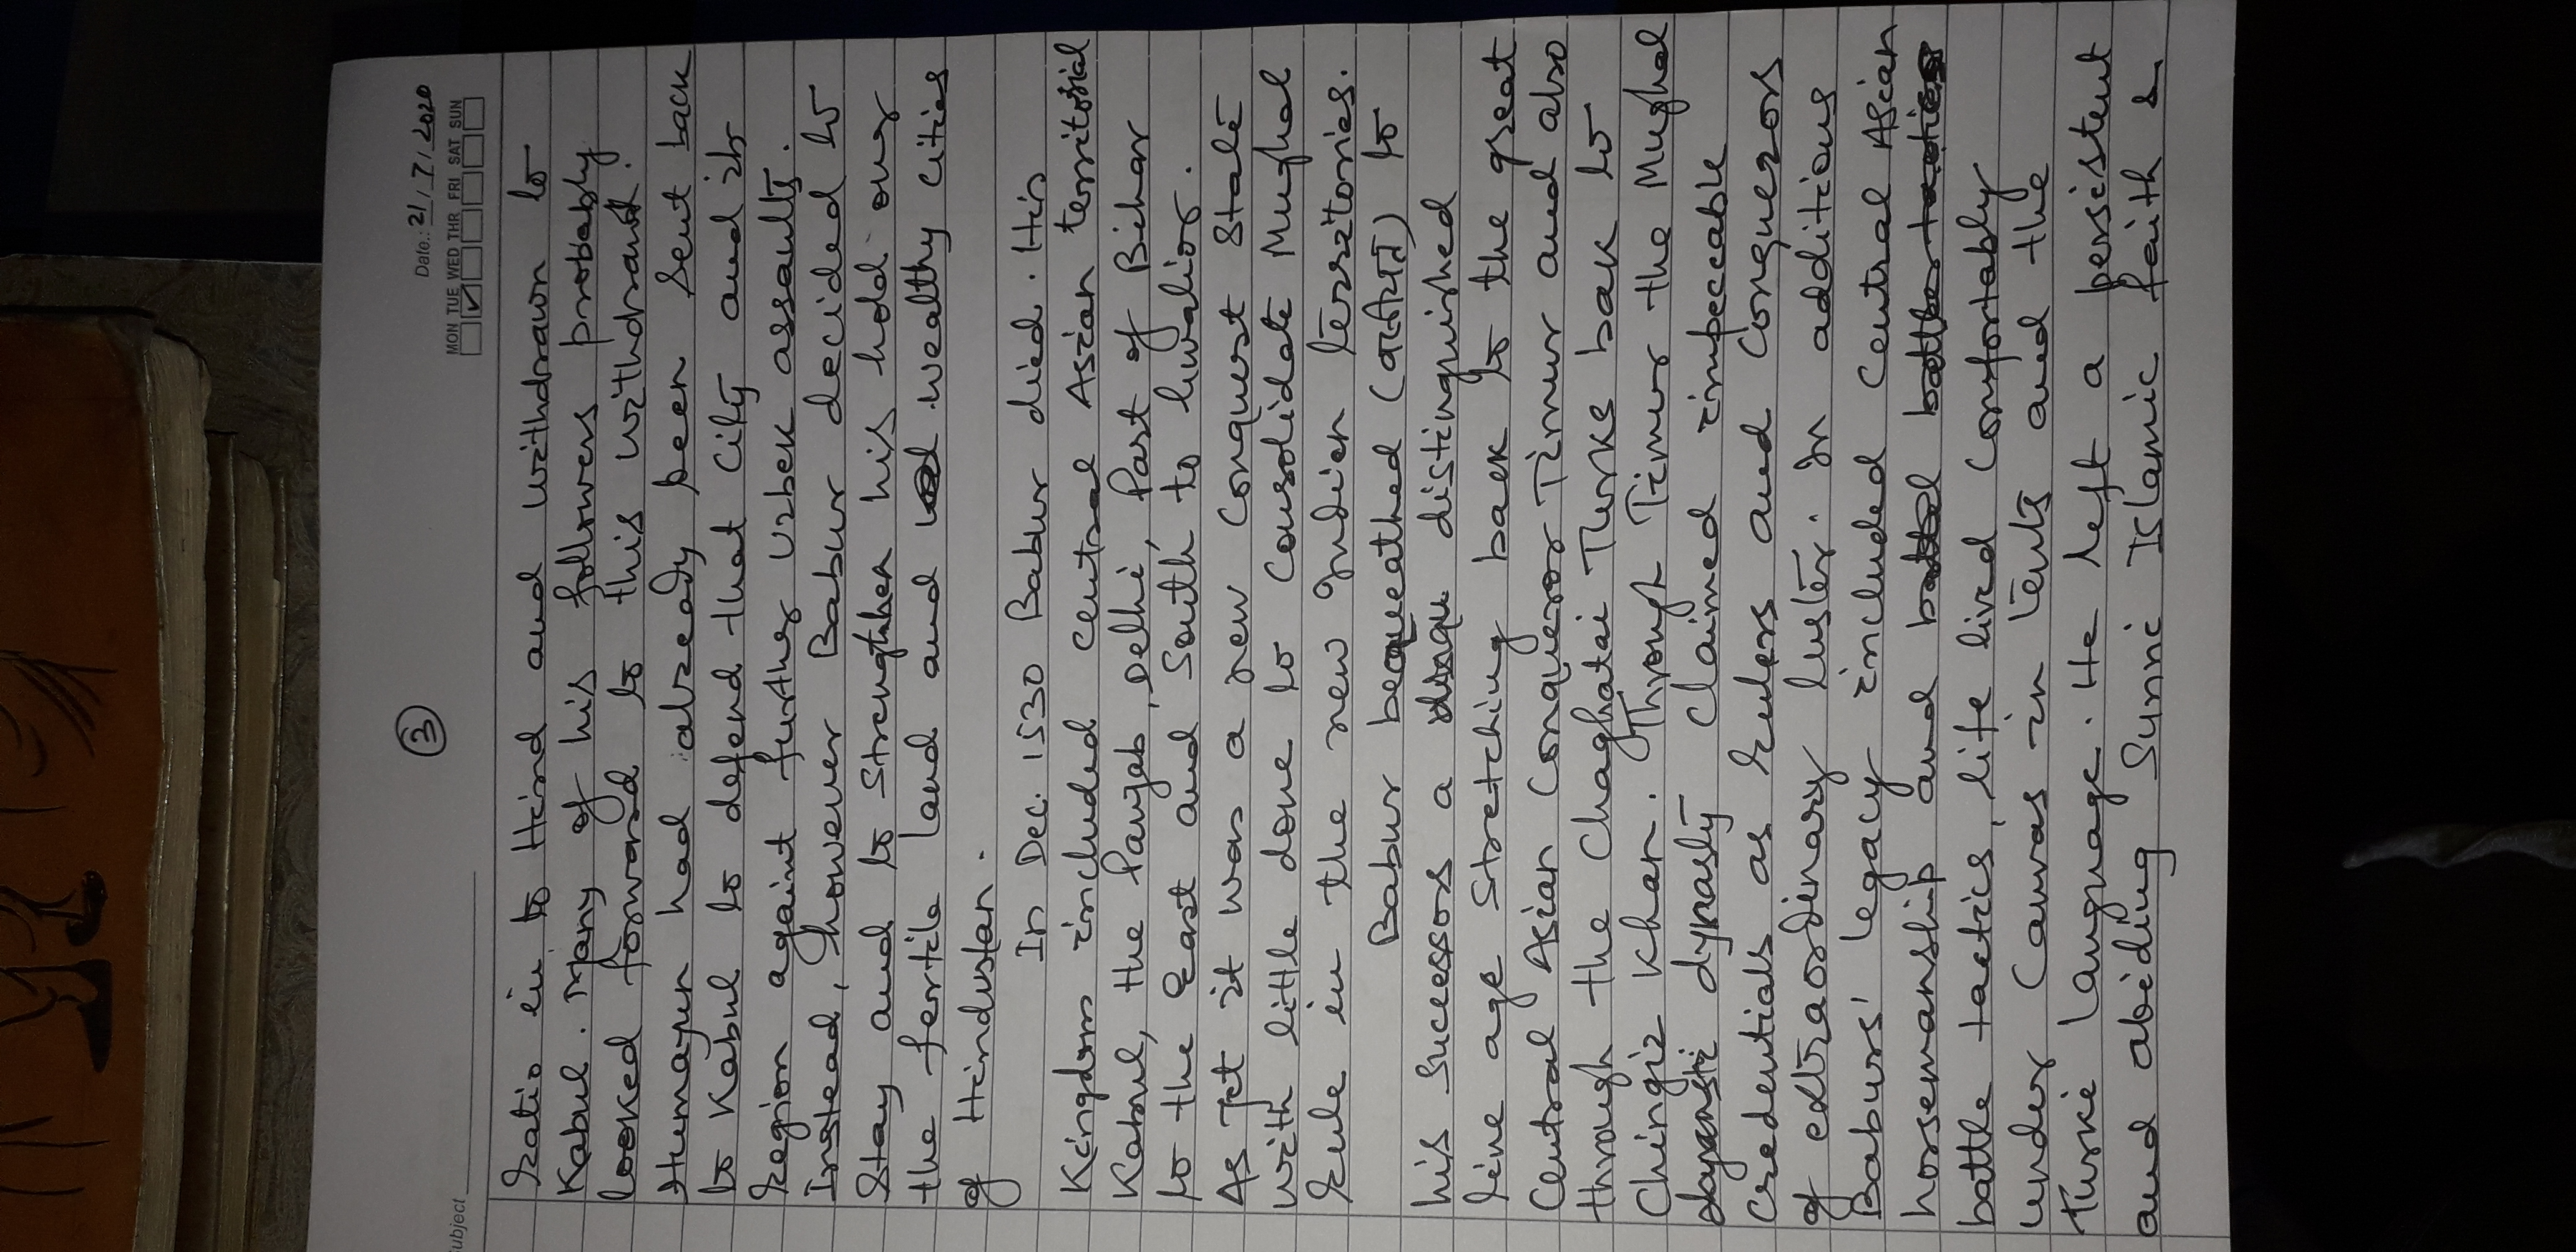 ③
Date.: 21/7/2020
MON TUE WED THR FRI SAT SUN
ubject
ratio in to Hind and withdrawn to
Kabul. Many of his followers probably
looked forward to this withdrawl.
Humayun had already been sent back
to Kabul to defend that city and its
region againt further Uzbek assaults.
Instead, however Babur decided to
stay and to strengthen his hold over
the fertile land and wealthy cities
of Hindustan.
In Dec. 1530 Babur died. His
Kingdom included central Asian territorial
Kabul, the Panjab, Delhi, Part of Bihar
to the East and South to Gwalior.
As yet it was a new conquest state
with little done to consolidate Mughal
rule in the new Indian territories.
Babur bequeathed (वसीयत) to
his successors a distinguished
line age stretching back to the great
Central Asian Conqueror Timur and also
through the Chaghatai Turks back to
Chingiz Khan. Through Timur the Mughal
dynasty claimed impeccable
credentials as rulers and conquerors
of extraordinary luster. In additions
Baburs' legacy included Central Asian
horsemanship and
battle tactics, life lived comfortably
under Canvas in tents and the
Turki language. He left a persistent
and abiding Sunni Islamic faith &